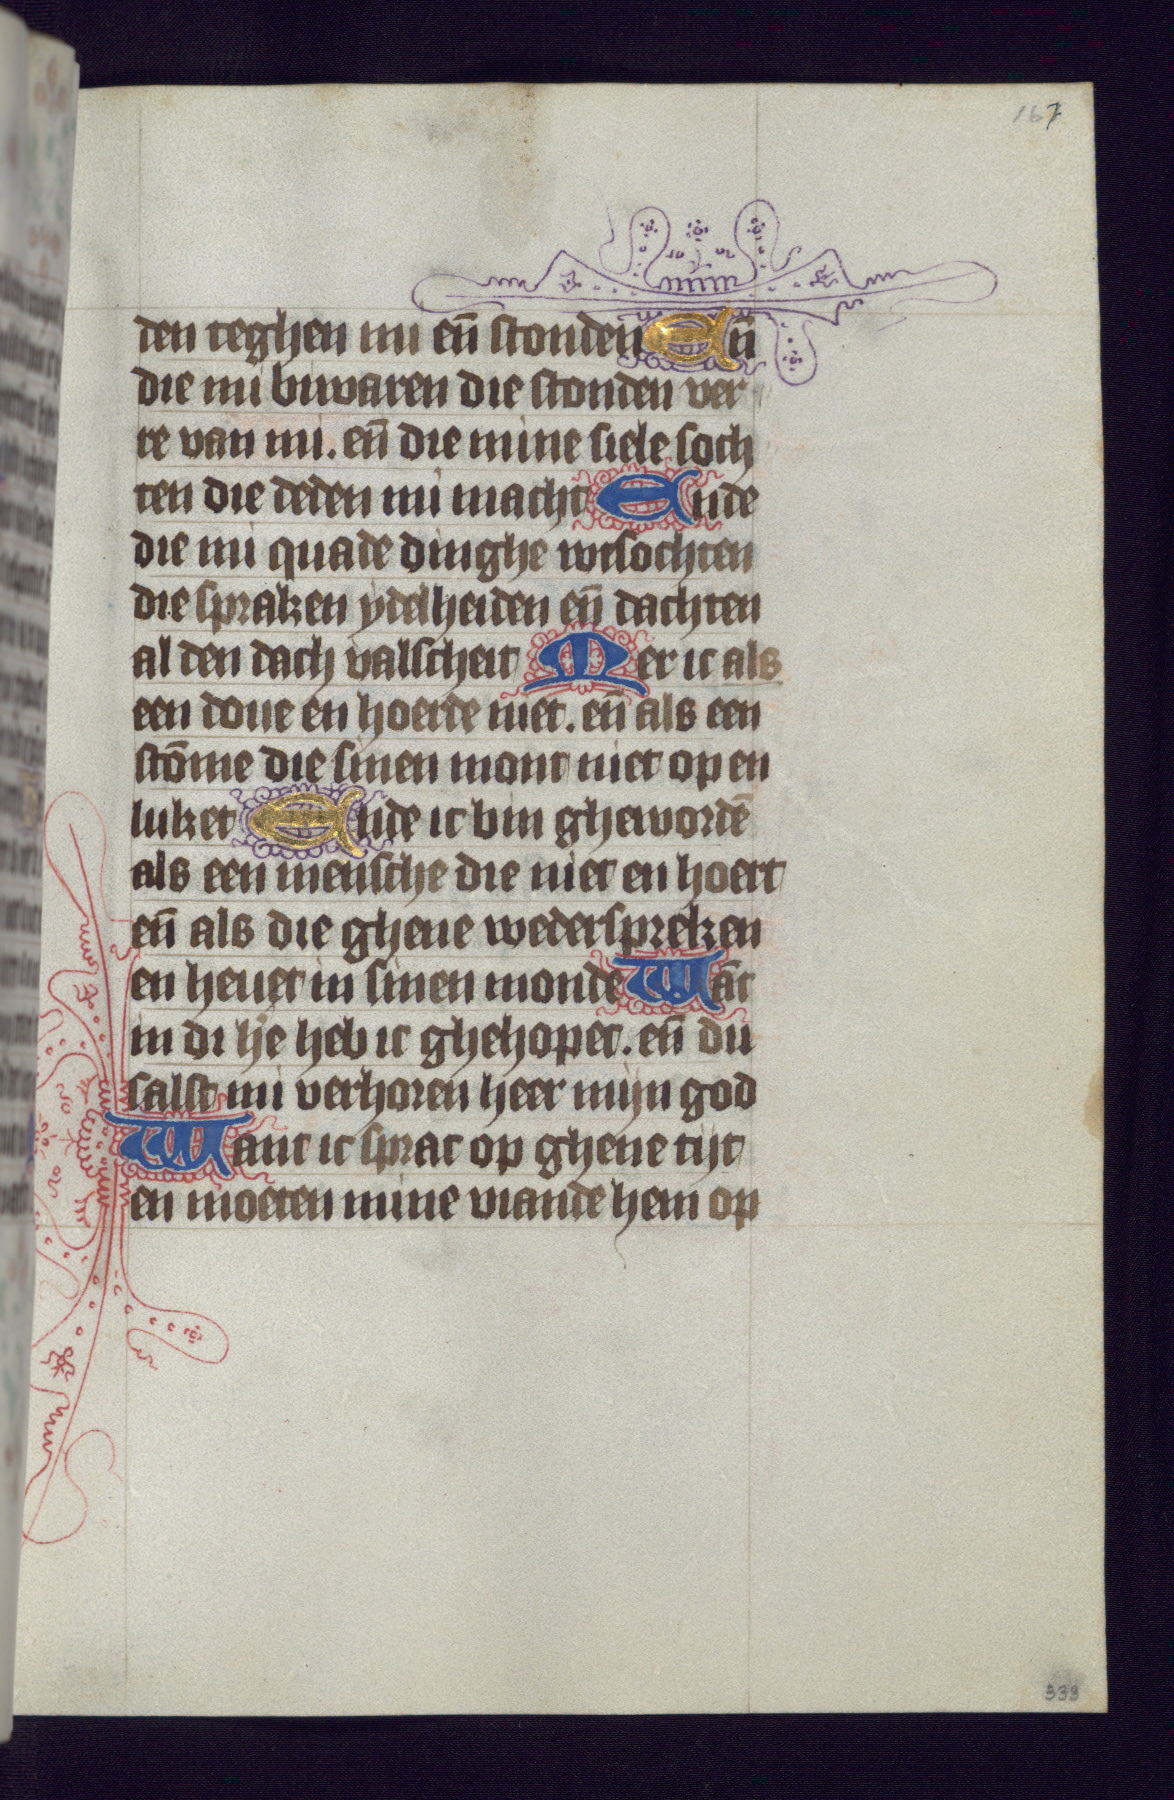 167
den teghen mi en̄ stonden En̄
die mi biwaren die stonden ver
re van mi. en̄ die mine siele soch
ten die deden mi macht Ende
die mi quade dinghe wtsochten
die spraken ydelheiden en̄ dachten
al den dach valscheit Mer ic als
een doue en hoerde niet. en̄ als een
stōme die sinen mont niet op en
luket Ende ic bin ghewordē
als een mensche die niet en hoert
en̄ als die ghene wederspreken
en heuet in sinen monde Wāt
in di hē heb ic ghehopet. en̄ du
salst mi verhoren heer mijn god
Want ic sprac op ghene tijt
en moeten mine viande hem op
333